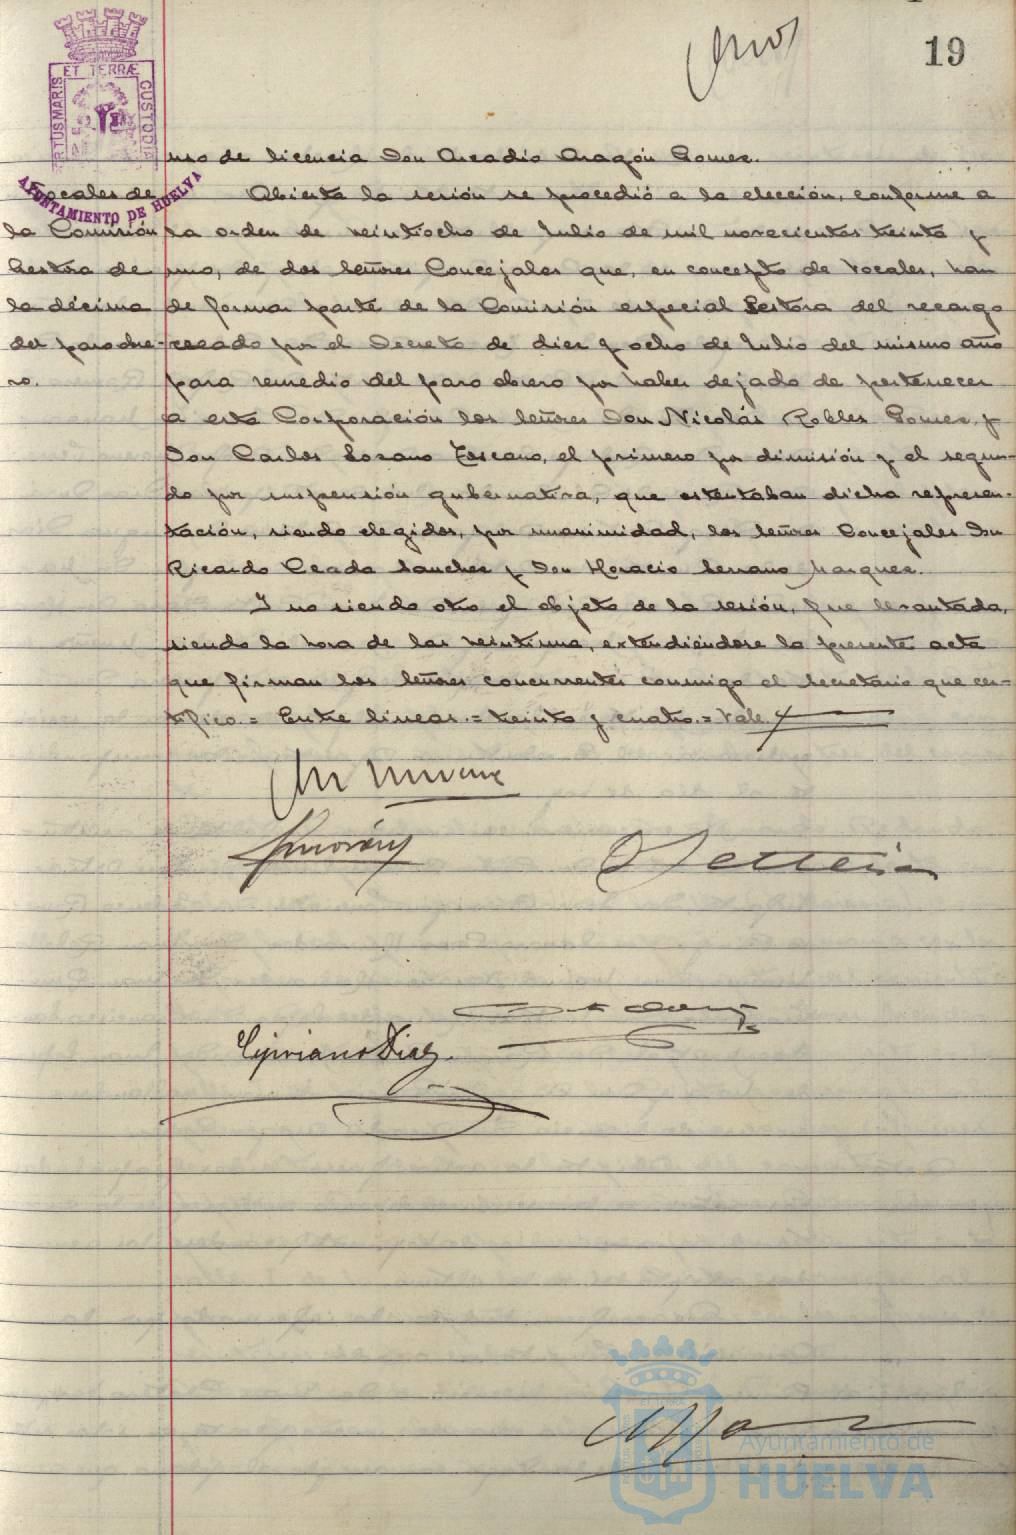 19
ET TERRÆ
PORTUS MARIS
CUSTODIA
AYUNTAMIENTO DE HUELVA
Vocales de
la Comisión
Gestora de
la décima
del paro obre-
ro.
uso de licencia Don Arcadio Aragón Gomez.
Abierta la sesión se procedió a la elección, conforme a
la orden de veintiocho de Julio de mil novecientos treinta y
uno, de dos Señores Concejales que, en concepto de Vocales, han
de formar parte de la Comisión especial Gestora del recargo
creado por el Decreto de diez y ocho de Julio del mismo año
para remedio del paro obrero por haber dejado de pertenecer
a esta Corporación los Señores Don Nicolás Robles Gomez y
Don Carlos Lozano Toscano, el primero por dimisión y el segun-
do por suspensión gubernativa, que ostentaban dicha represen-
tación, siendo elegidos, por unanimidad, los Señores Concejales Don
Ricardo Ceada Sanchez y Don Horacio Serrano Marquez.
Y no siendo otro el objeto de la sesión, fue levantada,
siendo la hora de las veintiuna, extendiéndose la presente acta
que firman los Señores concurrentes conmigo el Secretario que cer-
tifico.= Entre lineas.= treinta y cuatro.= Vale.
Cipriano Diaz
Ayuntamiento de
HUELVA